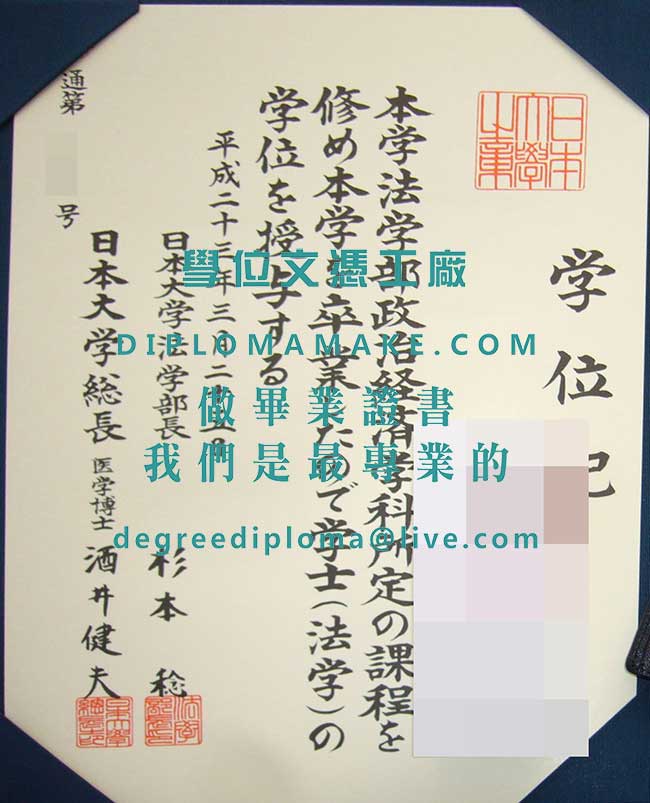 日本大學之章
学位記
本学法学部政治経済学科所定の課程を
修め本学を卒業したので学士(法学)の
学位を授与する
平成二十三年三月二十五日
日本大学法学部長 杉本 稔
日本大学総長 医学博士 酒井健夫
通第 号
學位文憑工廠
DIPLOMAMAKE.COM
做畢業證書
我們是最專業的
degreediploma@live.com